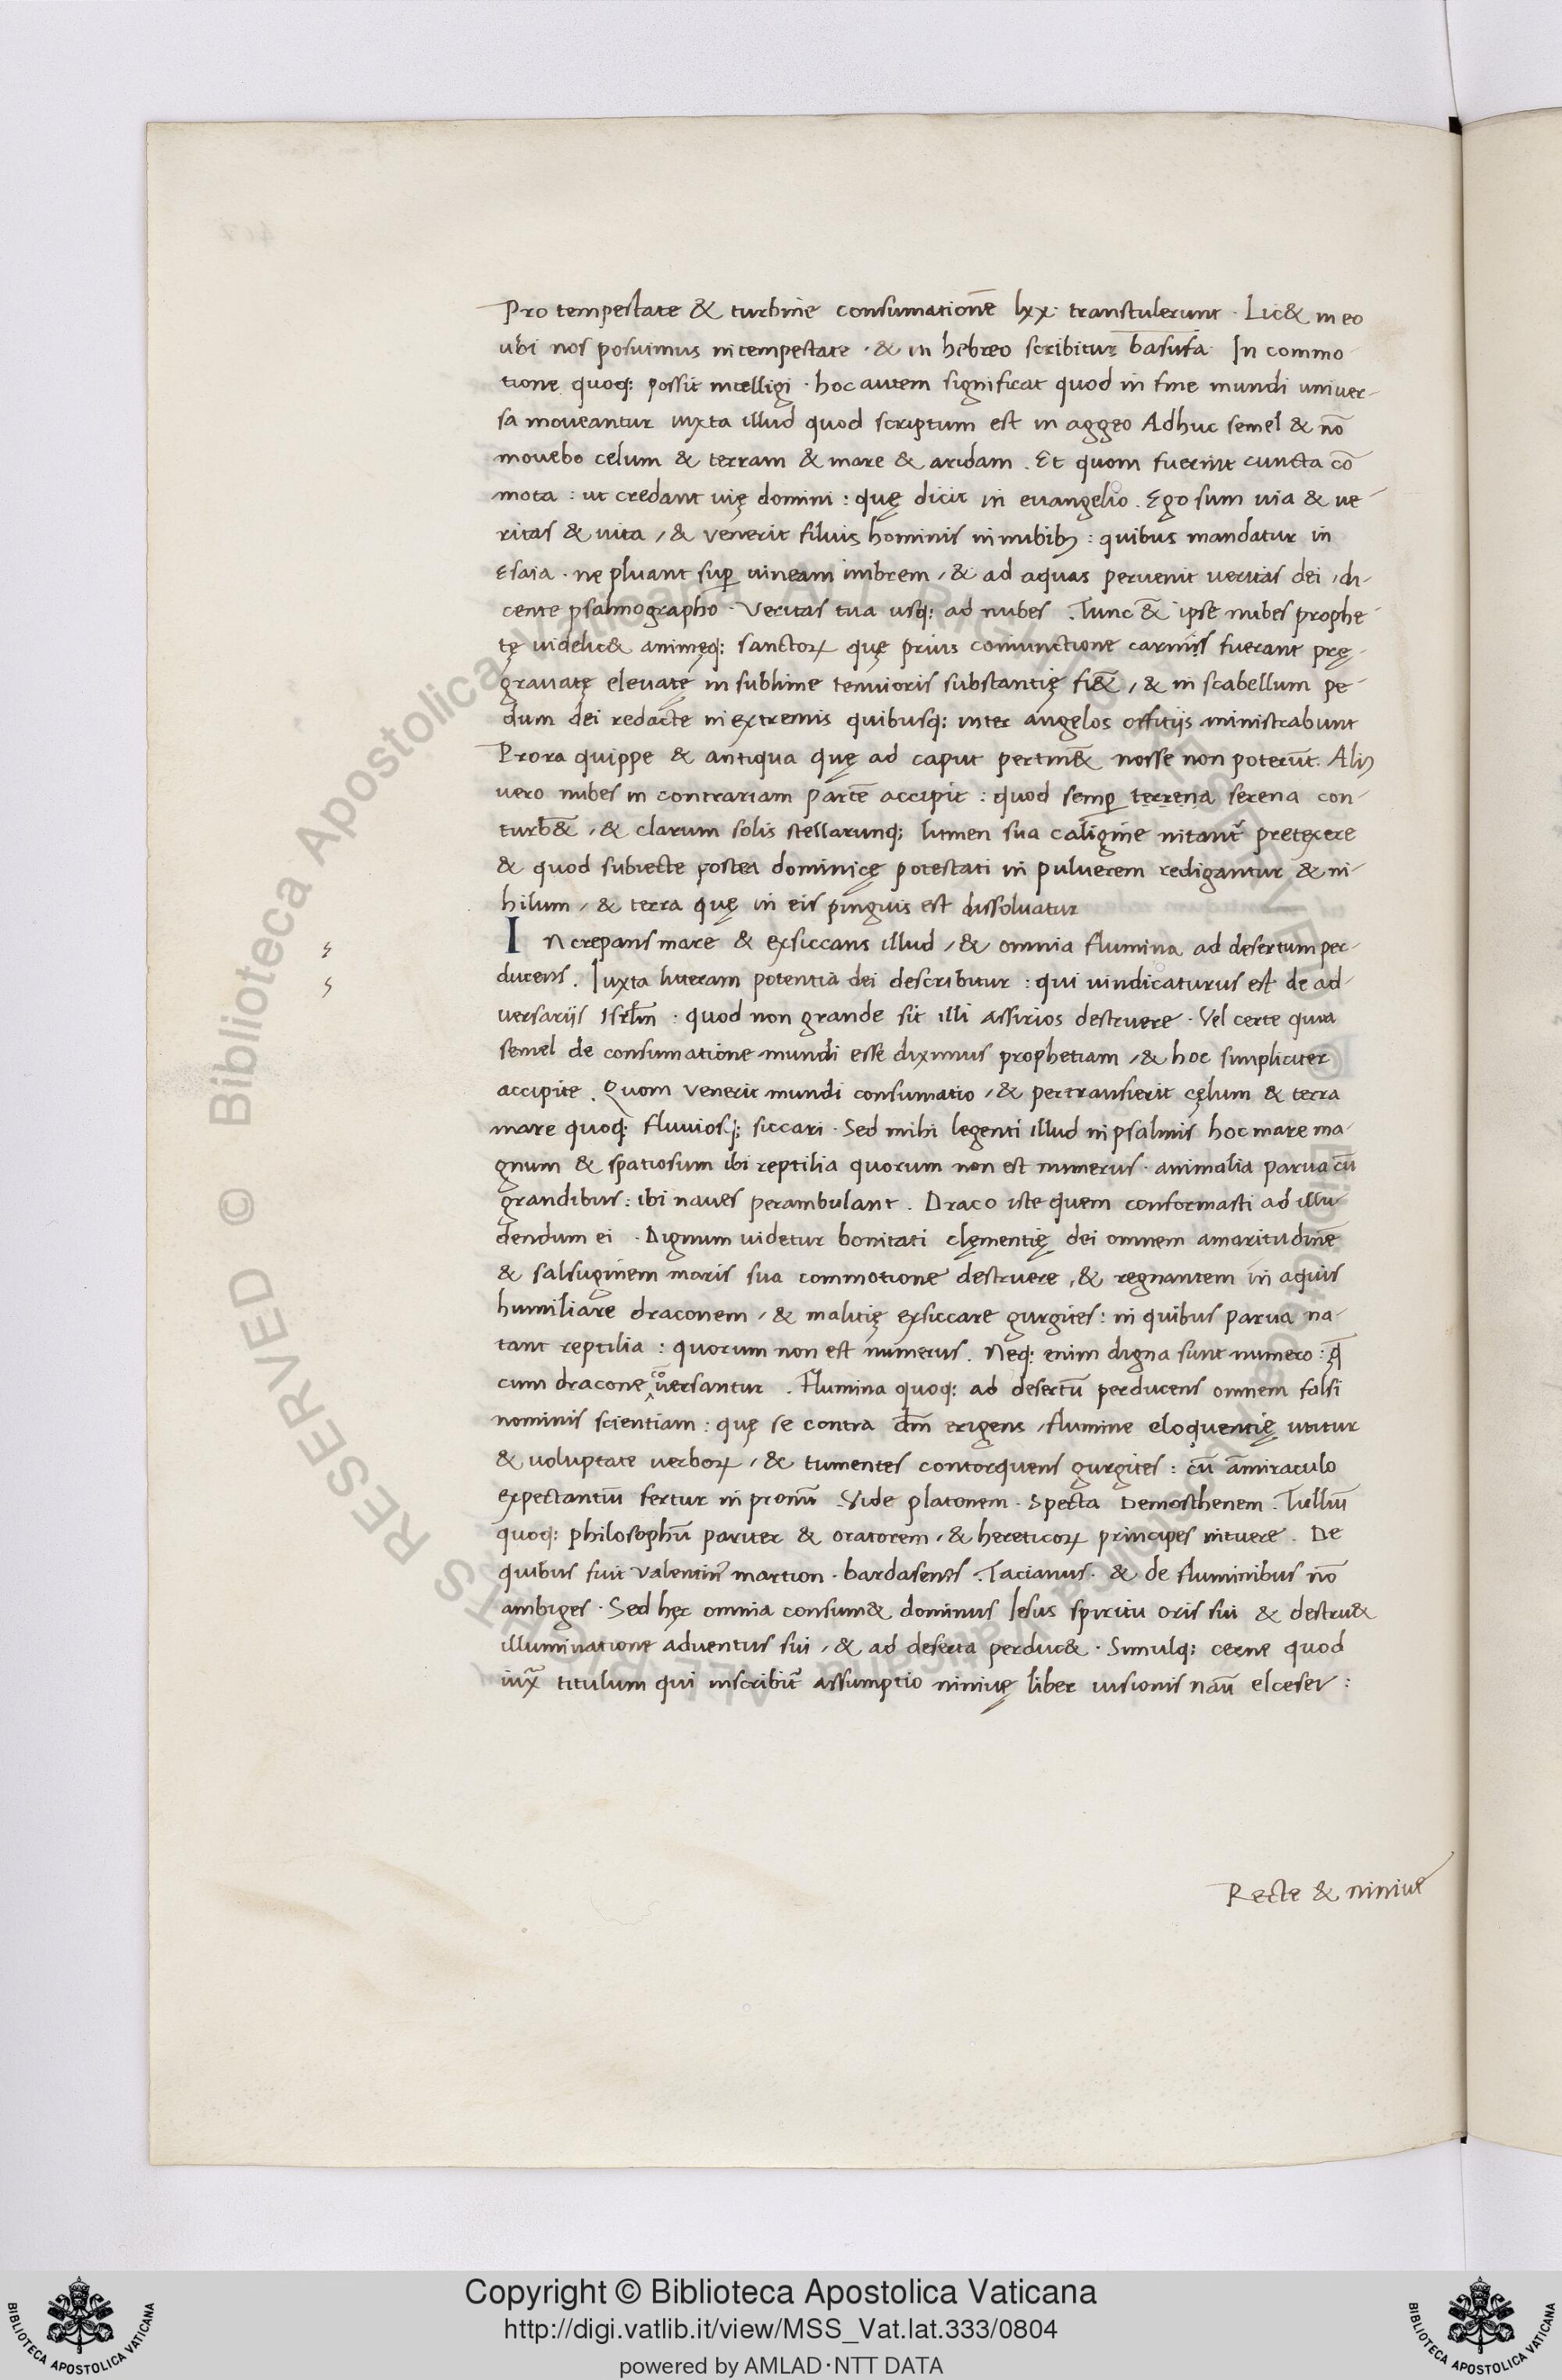 Pro tempestate & turbine consumationē lxx. transtulerunt. Lic& in eo
ubi nos posuimus in tempestate. & in hebreo scribitur basufa. In commo
tione quoq; possit intelligi. hoc autem significat quod in fine mundi univer-
sa moveantur iuxta illud quod scriptum est in aggeo Adhuc semel & nō
movebo celum & terram & mare & aridam. Et quom fuerint cuncta cō
mota: ut credant uię domini: quę dicit in evangelio. Ego sum via & ve-
ritas & vita, & venerit filius hominis in nubib;: quibus mandatur in
Esaia. ne pluant sup̄ vineam imbrem, & ad aquas pervenit veritas dei, di-
cente psalmographo. Veritas tua usq; ad nubes. Tunc &̄ ipse nubes prophe-
tę videlic& animęq; sanctoꝝ quę prius coniunctione carnis fuerant pre-
gravatę elevatę in sublime tenuioris substantię fi&̄, & in scabellum pe-
dum dei redacte in extremis quibusq; inter angelos offitijs ministrabunt
Prora quippe & antiqua quę ad caput pertin&̄ nosse non poterūt. Alij
vero nubes in contrariam partē accipit: quod semp̄ terrena serena con-
turb&̄, & clarum solis stellarunq; lumen sua caligine nitant̄ pretexere
& quod subiecte postea dominicę potestati in pulverem redigantur & ni-
hilum, & terra quę in eis pinguis est dissolvatur
Increpans mare & exsiccans illud, & omnia flumina ad desertum per-
ducens. Iuxta litteram potentia dei describitur: qui vindicaturus est de ad-
versarijs Isrl̄m: quod non grande sit illi assirios destruere. Vel certe quia
semel de consumatione mundi esse diximus prophetiam, & hoc simpliciter
accipite. Quom venerit mundi consumatio, & pertransierit cęlum & terra
mare quoq; fluviosq; siccari. Sed mihi legenti illud in psalmis hoc mare ma-
gnum & spatiosum ibi reptilia quorum non est numerus. animalia parva cū
grandibus: ibi naves perambulant. Draco iste quem conformasti ad illu-
dendum ei. Dignum videtur bonitati clęmentię dei omnem amaritudinē
& salsuginem maris sua commotione destruere, & regnantem in aquis
humiliare draconem, & malitię exsiccare gurgites: in quibus parva na-
tant reptilia: quorum non est numerus. Neq; enim digna sunt numero: q̄
cum dracone cōversantur. Flumina quoq; ad desertū perducens omnem falsi
nominis scientiam: quę se contra dm̄ erigens, flumine eloquentię utitur
& voluptate verboꝝ, & tumentes contorquens gurgites: cū amiraculo
expectantiū fertur in pronū. Vide platonem. Specta Demosthenem. Tulliū
quoq; philosophū pariter & oratorem, & hereticoꝝ principes intuere. De
quibus fuit Valentin̄ martion. bardasenes. Tacianus. & de fluminibus nō
ambiges. Sed hęc omnia consum& dominus Iesus spiritu oris sui & destru&
illuminatione adventus sui, & ad deserta perduc&. Simulq; cerne quod
iux̄ titulum qui inscribit̄ assumptio ninivę liber visionis naū elcesei:
Recte & ninive
Copyright © Biblioteca Apostolica Vaticana
http://digi.vatlib.it/view/MSS_Vat.lat.333/0804
powered by AMLAD·NTT DATA
BIBLIOTECA APOSTOLICA VATICANA
BIBLIOTECA APOSTOLICA VATICANA